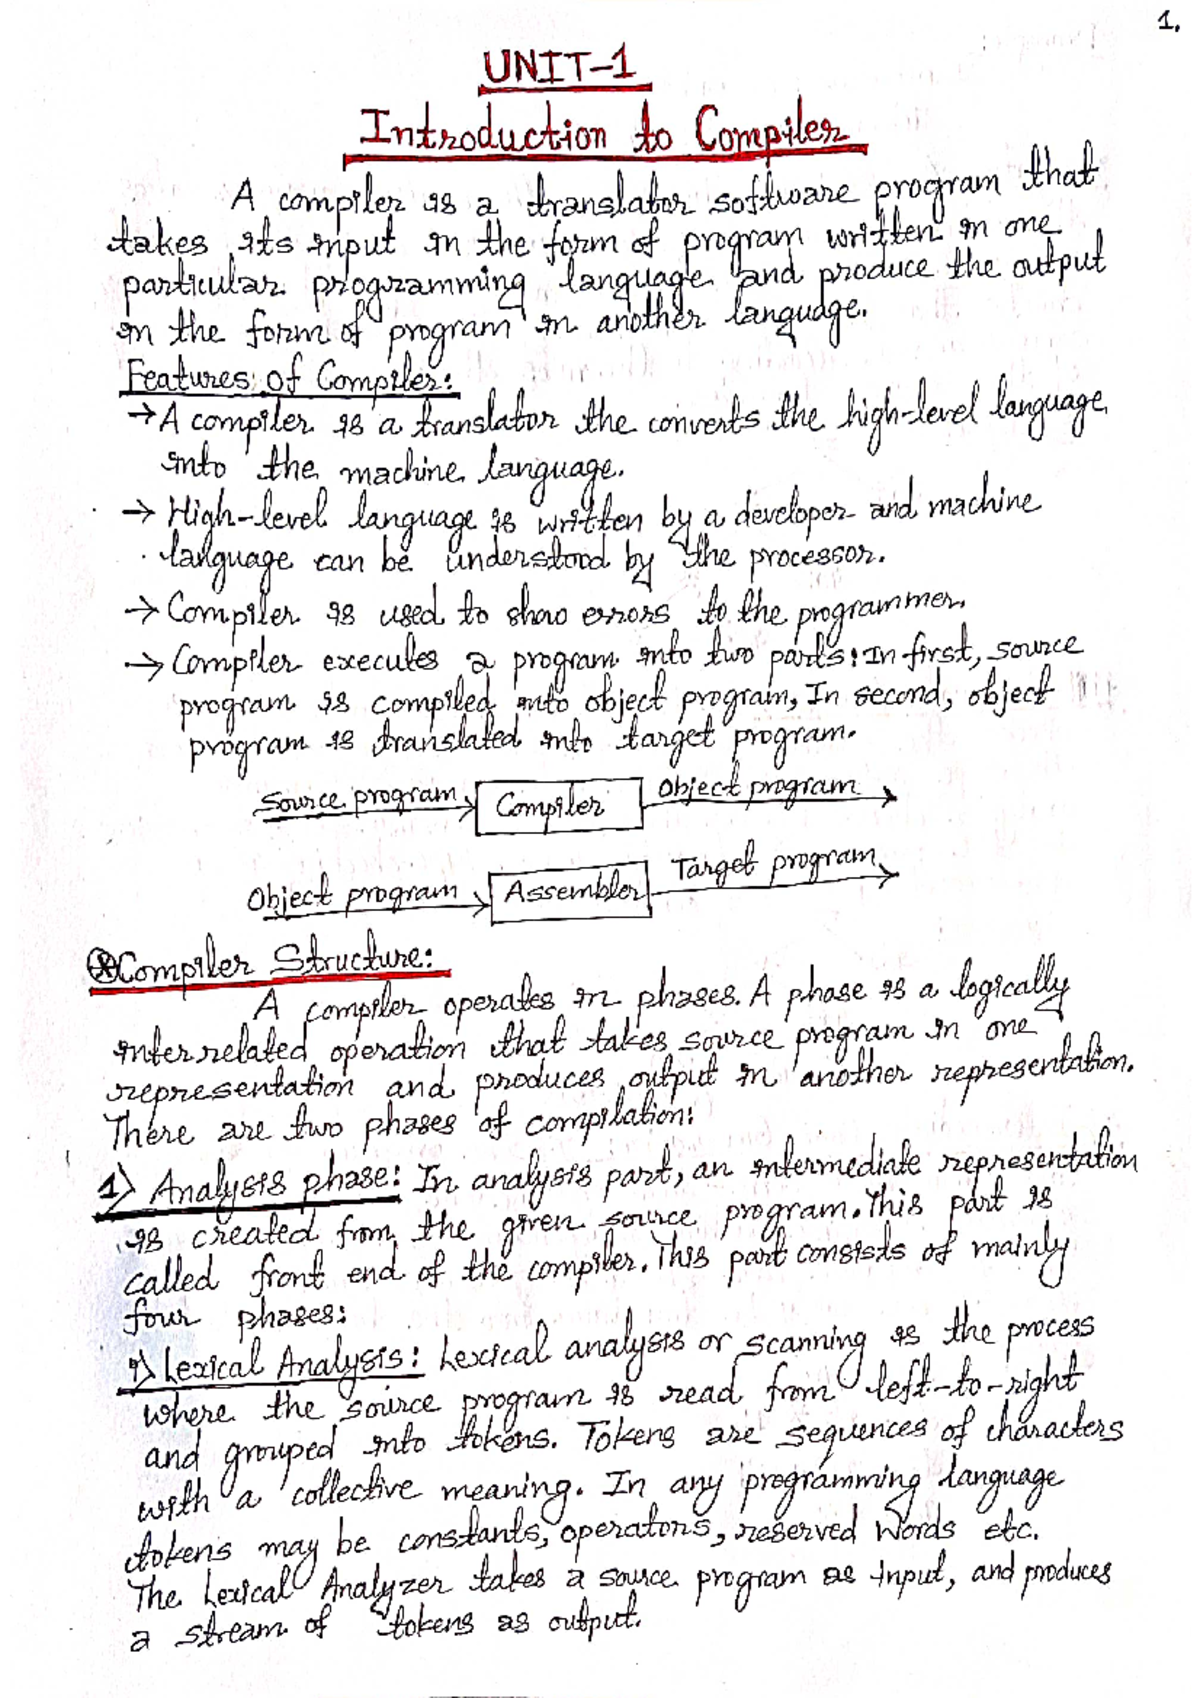 1.
UNIT-1
Introduction to Compiler
A compiler is a translator software program that
takes its input in the form of program written in one
particular programming language and produce the output
in the form of program in another language.
Features of Compiler:
→ A compiler is a translator the converts the high-level language
into the machine language.
→ High-level language is written by a developer and machine
language can be understood by the processor.
→ Compiler is used to show errors to the programmer.
→ Compiler executes a program into two parts: In first, source
program is compiled into object program, In second, object
program is translated into target program.
Source program Compiler Object program
Object program Assembler Target program
⊛ Compiler Structure:
A compiler operates in phases. A phase is a logically
interrelated operation that takes source program in one
representation and produces output in another representation.
There are two phases of compilation:
1) Analysis phase: In analysis part, an intermediate representation
is created from the given source program. This part is
called front end of the compiler. This part consists of mainly
four phases:
i) Lexical Analysis: Lexical analysis or scanning is the process
where the source program is read from left-to-right
and grouped into tokens. Tokens are sequences of characters
with a collective meaning. In any programming language
tokens may be constants, operators, reserved words etc.
The Lexical Analyzer takes a source program as input, and produces
a stream of tokens as output.